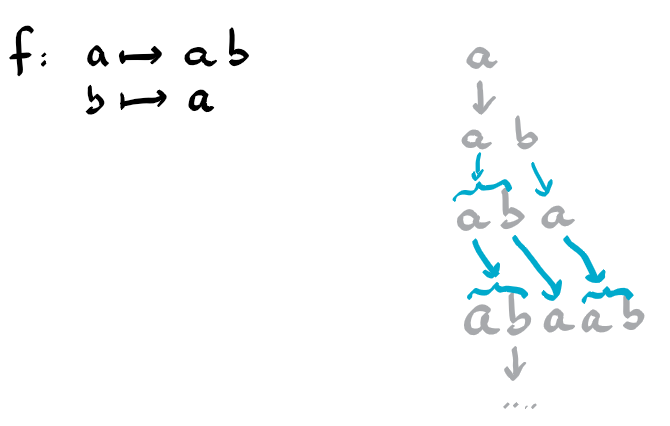 f: a ↦ ab
b ↦ a
a
↓
a b
a b a
a b a a b
↓
....